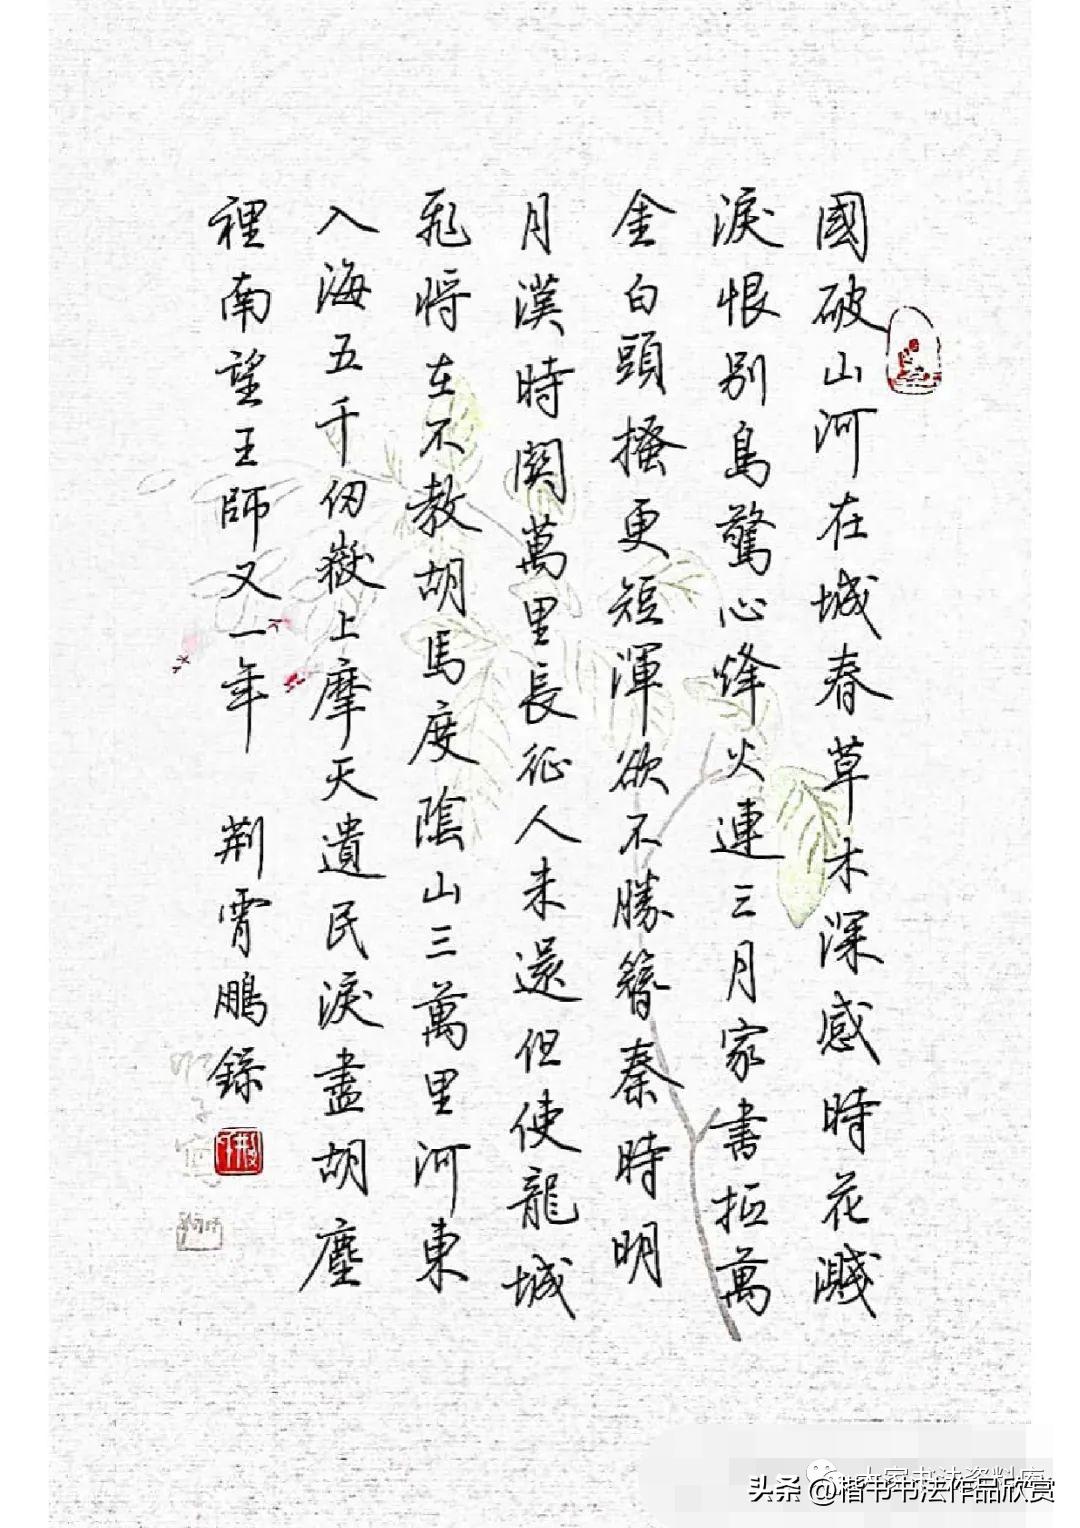 國破山河在城春草木深感時花濺
淚恨别鳥驚心烽火連三月家書抵萬
金白頭搔更短渾欲不勝簪秦時明
月漢時關萬里長征人未還但使龍城
飛將在不教胡馬度陰山三萬里河東
入海五千仞嶽上摩天遺民淚盡胡塵
裡南望王師又一年 荆霄鵬錄
头条@楷书书法作品欣赏